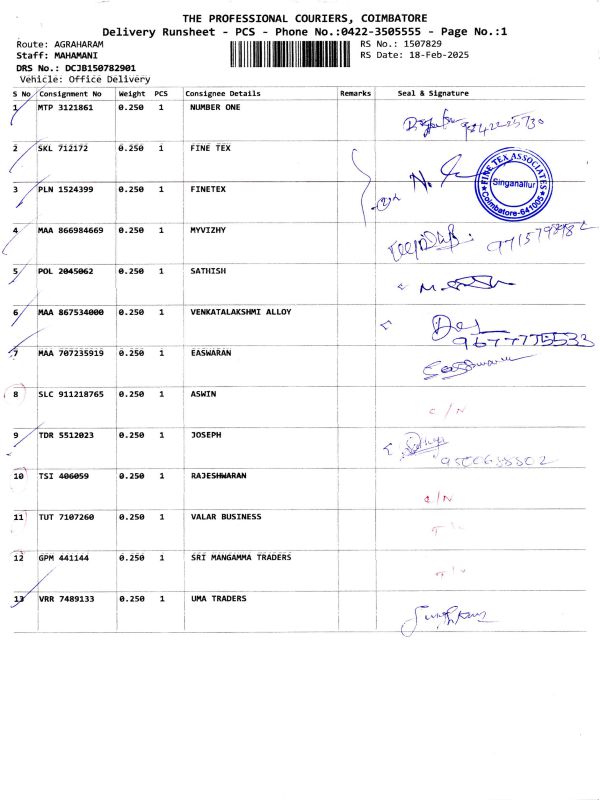 THE PROFESSIONAL COURIERS, COIMBATORE
Delivery Runsheet - PCS - Phone No.:0422-3505555 - Page No.:1
Route: AGRAHARAM RS No.: 1507829
Staff: MAHAMANI RS Date: 18-Feb-2025
DRS No.: DCJB150782901
Vehicle: Office Delivery
S No Consignment No Weight PCS Consignee Details Remarks Seal & Signature
1 MTP 3121861 0.250 1 NUMBER ONE
2 SKL 712172 0.250 1 FINE TEX
FINE TEX ASSOCIATES
Singanallur
Coimbatore-641005
3 PLN 1524399 0.250 1 FINETEX
4 MAA 866984669 0.250 1 MYVIZHY
5 POL 2045062 0.250 1 SATHISH
6 MAA 867534000 0.250 1 VENKATALAKSHMI ALLOY
9677775533
7 MAA 707235919 0.250 1 EASWARAN
Easwaran
8 SLC 911218765 0.250 1 ASWIN
C/N
9 TDR 5512023 0.250 1 JOSEPH
10 TSI 406059 0.250 1 RAJESHWARAN
C/N
11 TUT 7107260 0.250 1 VALAR BUSINESS
12 GPM 441144 0.250 1 SRI MANGAMMA TRADERS
13 VRR 7489133 0.250 1 UMA TRADERS